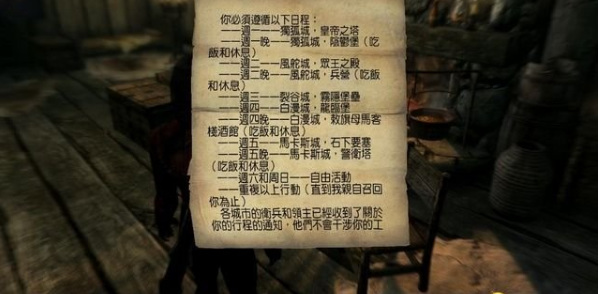 你必須遵循以下日程：
——週一——獨孤城，皇帝之塔
——週一晚——獨孤城，陰鬱堡（吃
飯和休息）
——週二——風舵城，眾王之殿
——週二晚——風舵城，兵營（吃飯
和休息）
——週三——裂谷城，霧隱堡壘
——週四——白漫城，龍臨堡
——週四晚——白漫城，敕旗母馬客
棧酒館（吃飯和休息）
——週五——馬卡斯城，石下要塞
——週五晚——馬卡斯城，警衛塔
（吃飯和休息）
——週六和周日——自由活動
——重複以上行動（直到我親自召回
你為止）
各城市的衛兵和領主已經收到了關於
你的行程的通知，他們不會干涉你的工